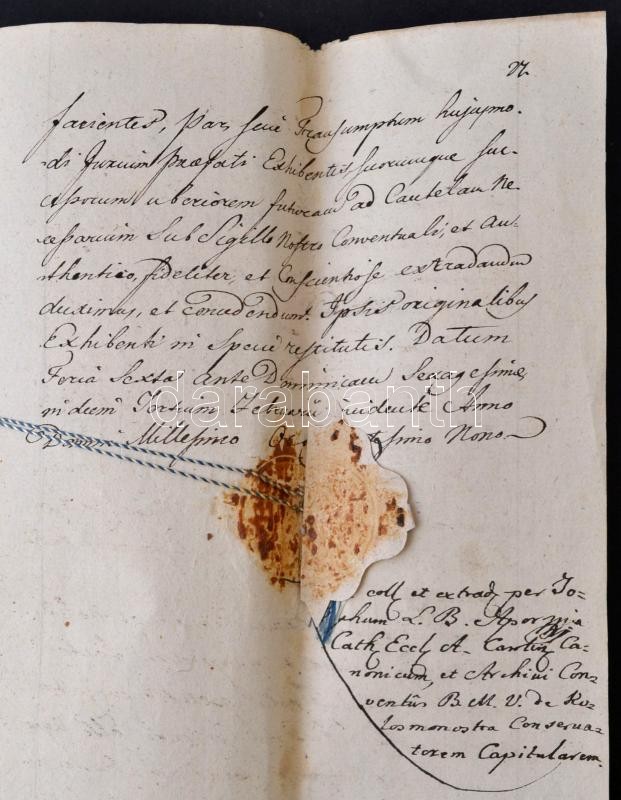 27.
facientes, par seu Transumptum hujusmo-
di Jurium praefati Exhibentis suorumque suc-
cessorum uberiorem futuram ad Cautelam Ne-
cessarium sub Sigillo Nostro Conventuali, et Au-
thentico, fideliter, et Conscientiose extradandum
duximus, et concedendum. Ipsis originalibus
Exhibenti in specie restitutis. Datum
Feria Sexta ante Dominicam Sexagesimae,
in diem Februarii incidente Anno
Domini Millesimo Nono
darabanth
coll et extrad per Jo-
L. B. Apor
Cath Eccl A. Carlin Ca-
nonicum, et Archivi Con-
ventûs B. M. V. de Ko-
losmonostra Conserva-
torem Capitularem.